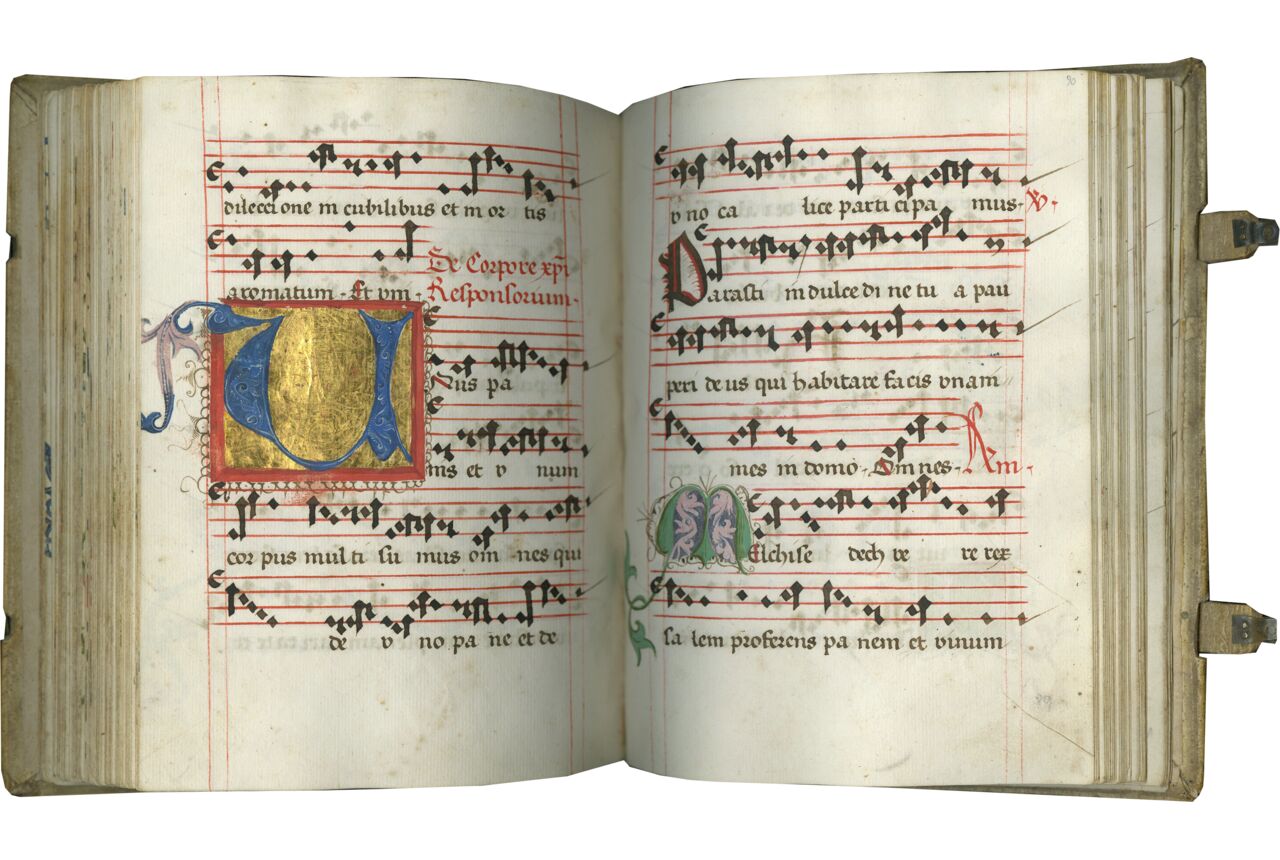 dileccione in cubilibus et mor tis
aromatum · Et vni · De Corpore xpi
Responsorium ·
Unus pa
nis et v num
cor pus mul ti su mus om nes qui
de v no pa ne et de
90
v no ca lice parti cipa mus · V.
Parasti in dulce di ne tu a pau
peri de us qui habitare facis vnam
mes in domo · Om nes · Am ·
Melchise dech ve re rex
sa lem proferens pa nem et vinum
89